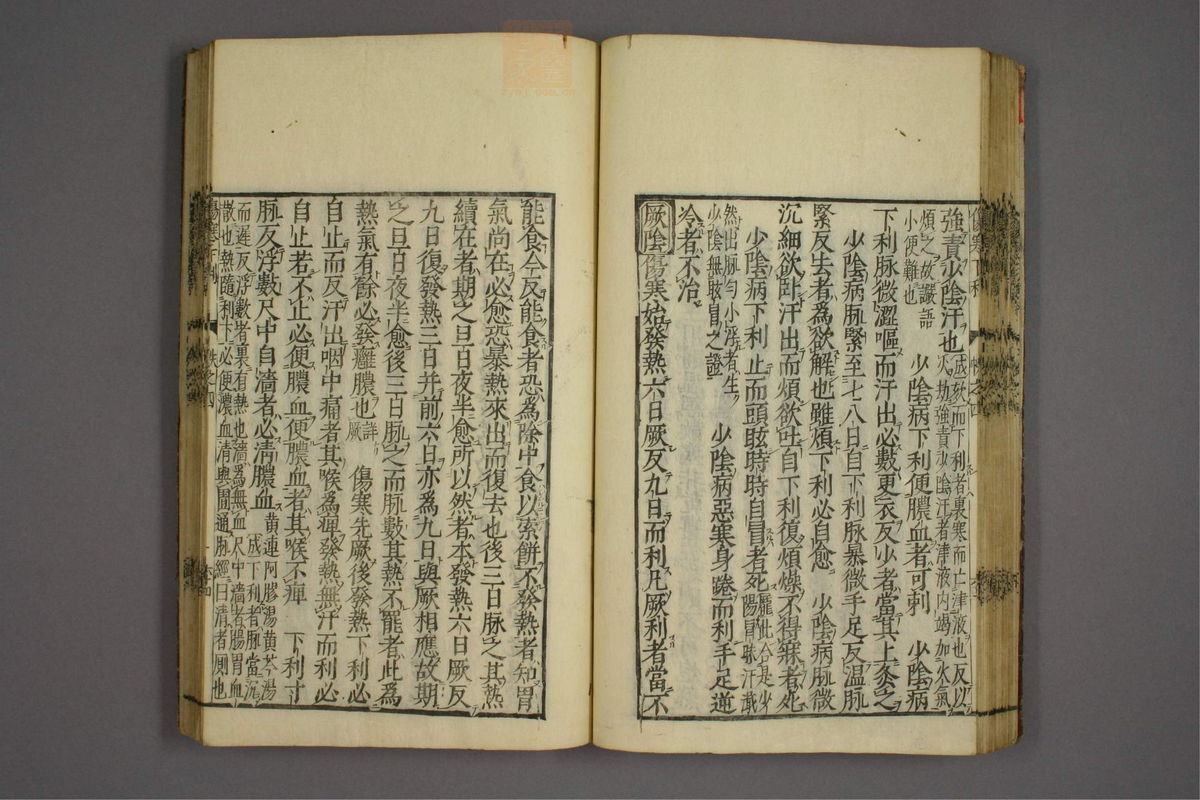 強責少陰汗也成欬而下利者裏寒而亡津液也反以
火劫強責少陰汗者津液内竭加火氣
煩之故讝語
小便難也　少陰病下利便膿血者可刺　少陰病
下利脉微澀嘔而汗出必數更衣反少者當其上灸之
少陰病脉緊至七八日自下利脉暴微手足反温脉
緊反去者為欲解也雖煩下利必自愈　少陰病脉微
沉細欲卧汗出而煩欲吐自下利復煩燥不得寐者死
少陰病下利止而頭眩時時自冒者死龐此合是少
陽冒昧汗戢
然出脉勻小浮者生
少陰無眩冒之證　少陰病惡寒身踡而利手足逆
冷者不治
厥陰傷寒始發熱六日厥反九日而利凡厥利者當不
能食今反能食者恐為除中食以索餅不發熱者知胃
氣尚在必愈恐暴熱來出而復去也後三日脉之其熱
續在者期之旦日夜半愈所以然者本發熱六日厥反
九日復發熱三日并前六日亦為九日與厥相應故期
之旦日夜半愈後三日脉之而脉數其熱不罷者此為
熱氣有餘必發癰膿也詳厥　傷寒先厥後發熱下利必
自止而反汗出咽中痛者其喉為痺發熱無汗而利必
自止若不止必便膿血便膿血者其喉不痺　下利寸
脉反浮數尺中自濇者必清膿血黄連阿膠湯黄芩湯
成下利者脉當沉
而遲反浮數者裏有熱也濇為無血尺中濇者腸胃血
散也熱隨利下必便膿血清與圊通脉經曰清者厠也